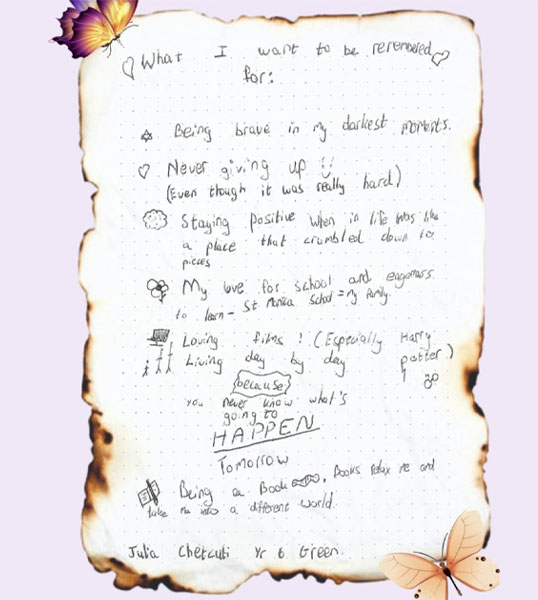 What I want to be remembered
for:
Being brave in my darkest moments.
Never giving up !!
(Even though it was really hard)
Staying positive when in life was like
a place that crumbled down to
pieces
My love for school and
to learn - St Monica School = my family.
Loving films! (Especially Harry
Potter)
Living day by day
because
you never know what's
going to
HAPPEN
Tomorrow
Being a Book. Books relax me and
take me into a different world.
Julia Chetcuti Yr 6 Green